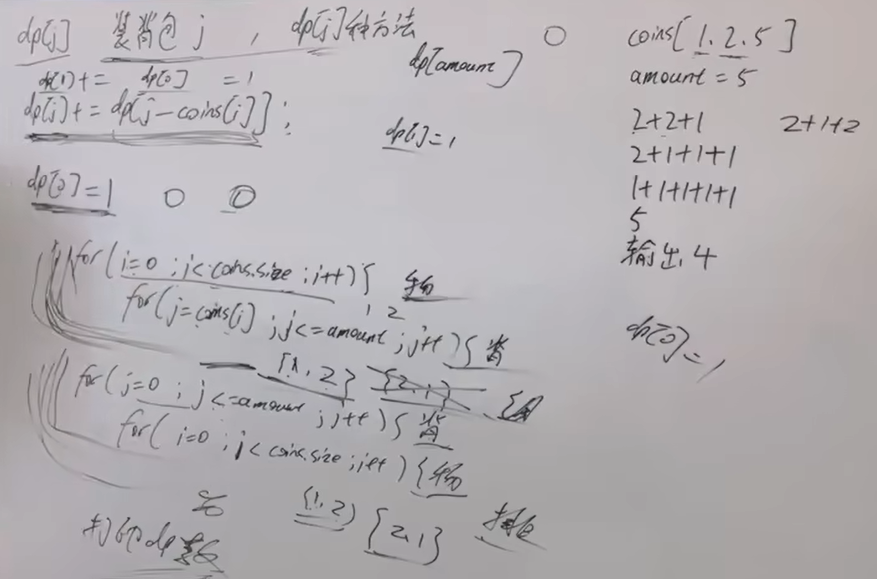 dp[j] 装背包 j , dp[j]种方法
dp[amount]
dp[1] += dp[0] = 1
dp[j] += dp[j-coins[i]];
dp[1]=1
dp[0]=1 0 0
for(i=0; i<coins.size; i++){ 物
1 2
for(j=coins[i]; j<=amount; j++){ 背
{1,2} {2,1}
for(j=0; j<=amount; j++){ 背
for(i=0; i<coins.size; i++){ 物
{1,2} {2,1}
打印dp
0
coins[1.2.5]
amount=5
2+2+1 2+1+2
2+1+1+1
1+1+1+1+1
5
输出 4
dp[0]=1